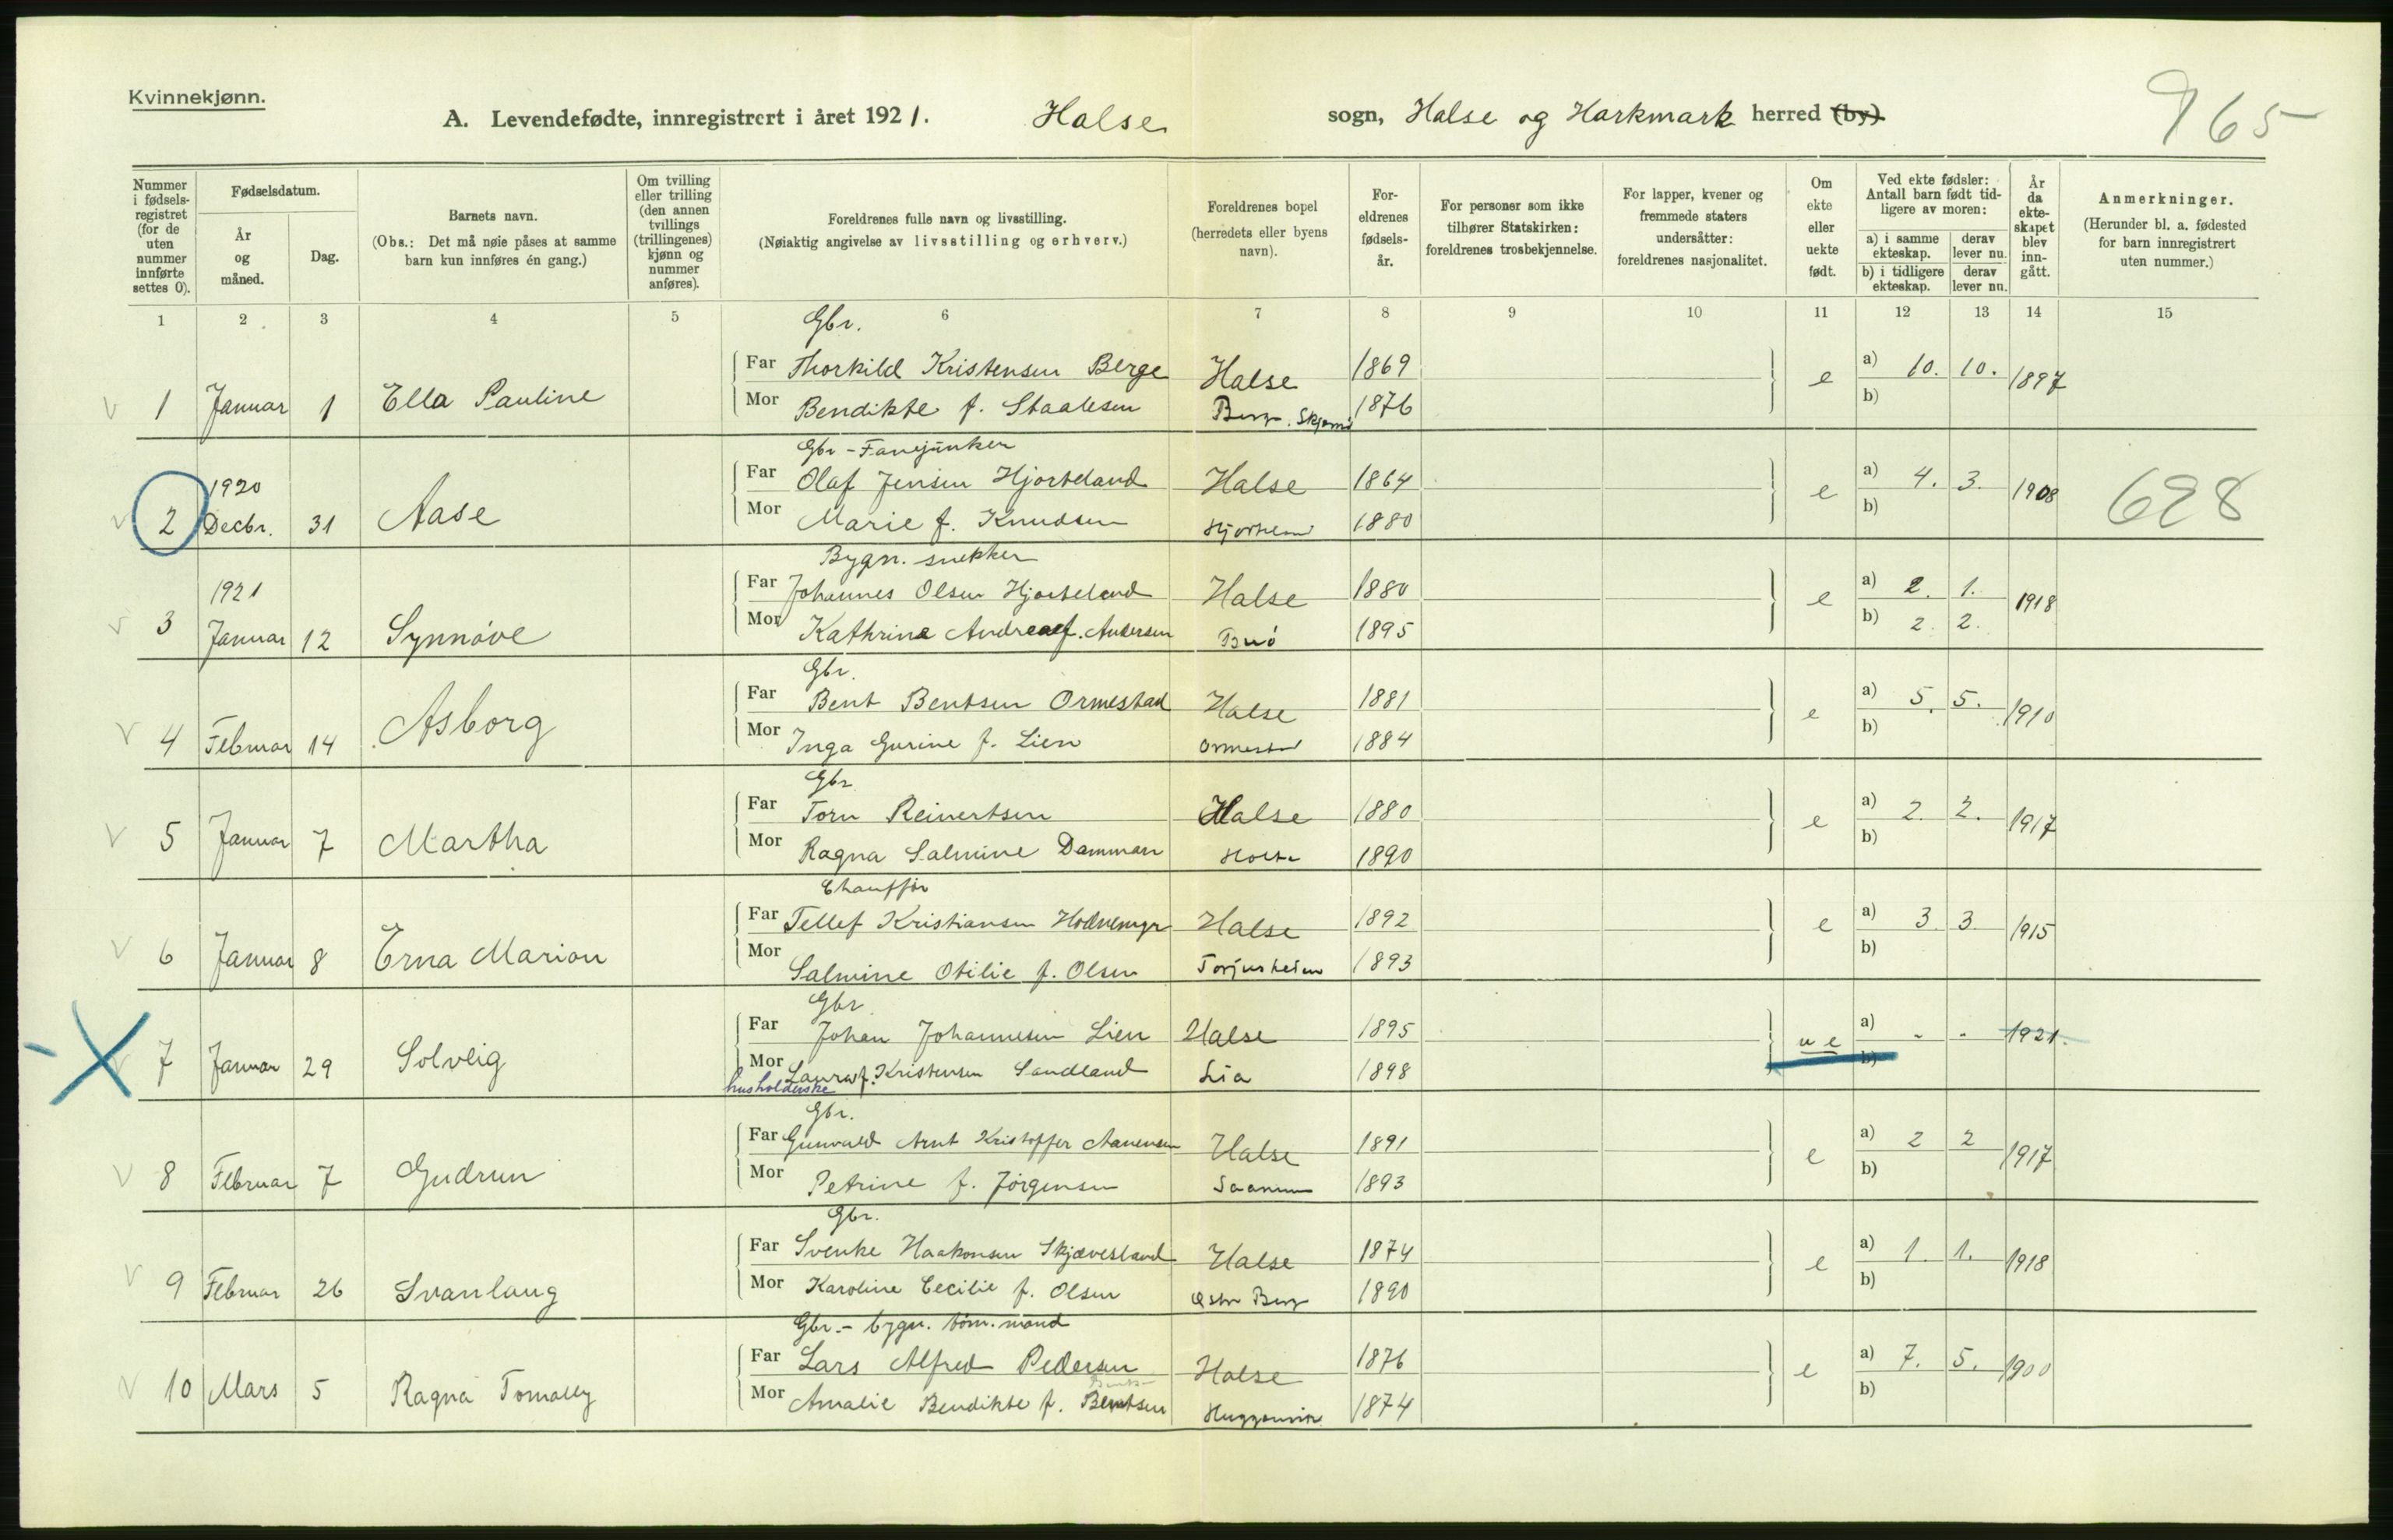 Kvinnekjønn.
A. Levendefødte, innregistrert i året 1921. Halse sogn, Halse og Harkmark herred (by).
965
Nummer i fødselsregistret (for de uten nummer innførte settes 0).
Fødselsdatum.
År og måned.
Dag.
Barnets navn.
(Obs.: Det må nøie påses at samme barn kun innføres én gang.)
Om tvilling eller trilling (den annen tvillings (trillingenes) kjønn og nummer anføres).
Foreldrenes fulle navn og livsstilling.
(Nøiaktig angivelse av livsstilling og erhverv.)
Foreldrenes bopel (herredets eller byens navn).
Foreldrenes fødselsår.
For personer som ikke tilhører Statskirken: foreldrenes trosbekjennelse.
For lapper, kvener og fremmede staters undersåtter: foreldrenes nasjonalitet.
Om ekte eller uekte født.
Ved ekte fødsler: Antall barn født tidligere av moren:
a) i samme ekteskap. derav lever nu.
b) i tidligere ekteskap. derav lever nu.
År da ekteskapet blev inngått.
Anmerkninger.
(Herunder bl. a. fødested for barn innregistrert uten nummer.)
1 2 3 4 5 6 7 8 9 10 11 12 13 14 15
Gbr.
Far Thorkild Kristensen Berge Halse 1869 a) 10. 10.
1 Januar 1 Ella Pauline e 1897
Mor Bendikte f. Staalesen 1876 b)
Gbr - Fanejunker
1920 Far Olaf Jensen Hjorteland Halse 1864 a) 4. 3.
2 Decbr. 31 Aase e 1908 628
Mor Marie f. Knudsen 1880 b)
Bygn. snekker
1921 Far Johannes Olsen Hjorteland Halse 1880 a) 2. 1.
3 Januar 12 Synnøve e 1918
Mor Kathrine Andrea f. Andersen Buø 1895 b) 2. 2.
Gbr.
Far Bent Bentsen Ormestad Halse 1881 a) 5. 5.
4 Februar 14 Asborg e 1910
Mor Inga Gurine f. Lien Ormestad 1884 b)
Gbr
Far Torn Reinertsen Halse 1880 a) 2. 2.
5 Januar 7 Martha e 1917
Mor Ragna Salmine Damman Holte 1890 b)
Chauffør
Far Tellef Kristiansen Halse 1892 a) 3. 3.
6 Januar 8 Erna Marion e 1915
Mor Salmine Otilie f. Olsen Torjusheien 1893 b)
Gbr
Far Johan Johannesen Lien Halse 1895 a) - -
7 Januar 29 Solveig u e 1921.
Mor Laura f. Kristensen Sandland Lia 1898 b)
husholderske
Gbr.
Far Gunvald Arnt Kristoffer Aanensen Halse 1891 a) 2 2
8 Februar 7 Gudrun e 1917
Mor Petrine f. Jörgensen Saanum 1893 b)
Gbr.
Far Svenke Haakonsen Skjævesland Halse 1874 a) 1. 1.
9 Februar 26 Svanlaug e 1918
Mor Karoline Cecilie f. Olsen 1890 b)
Gbr. - bygn. töm. mand
Far Lars Alfred Pedersen Halse 1876 a) 7. 5.
10 Mars 5 Ragna e 1900
Mor Amalie Bendikte f. Bentsen 1874 b)